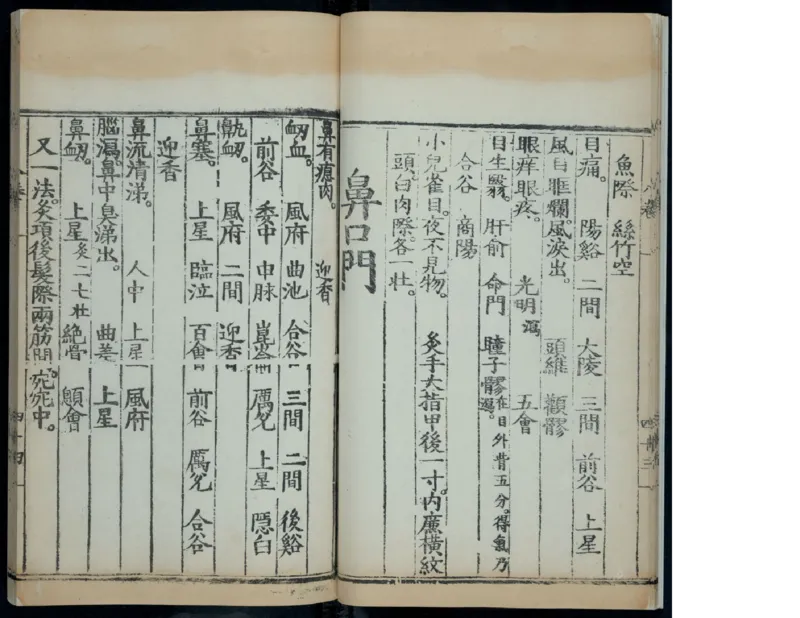 魚際 絲竹空
目痛。 陽谿 二間 大陵 三間 前谷 上星
風目眶爛。風淚出。 頭維 顴髎
眼痒眼疼。 光明瀉 五會
目生翳。 肝俞 命門 瞳子髎在目外眥五分。得氣乃瀉。
合谷 商陽
小兒雀目。夜不見物。 灸手大指甲後一寸。內廉橫紋
頭白肉際。各一壯。
鼻口門
鼻有瘜肉。 迎香
衂血。 風府 曲池 合谷 三間 二間 後谿
前谷 委中 申脉 崑崙 厲兌 上星 隱白
鼽衂。 風府 二間 迎香
鼻塞。 上星 臨泣 百會 前谷 厲兌 合谷
迎香
鼻流清涕。 人中 上星 風府
腦瀉。鼻中臭涕出。 曲差 上星
鼻衂。 上星灸二七壯 絕骨 顖會
又一法。灸項後髮際兩筋間。宛宛中。
四十四